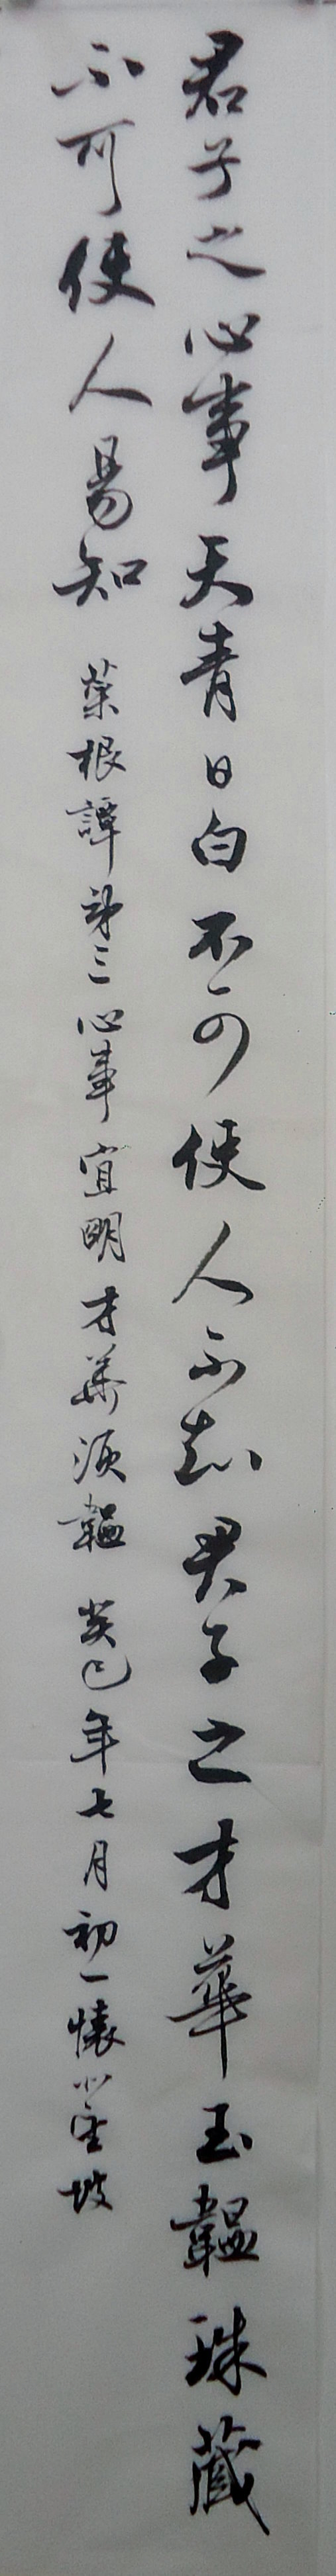 君子之心事天青日白不可使人不知君子之才華玉韞珠藏
不可使人易知 菜根譚第三心事宜明才華須韞 癸巳年七月初一懷